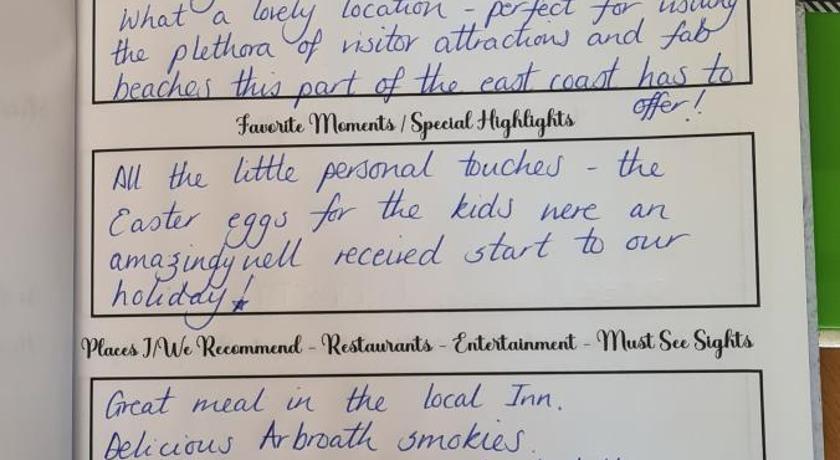 What a lovely location - perfect for visiting
the plethora of visitor attractions and fab
beaches this part of the east coast has to
offer!
Favorite Moments / Special Highlights
All the little personal touches - the
Easter eggs for the kids were an
amazingly well received start to our
holiday!
Places I/We Recommend - Restaurants - Entertainment - Must See Sights
Great meal in the local Inn.
Delicious Arbroath smokies.